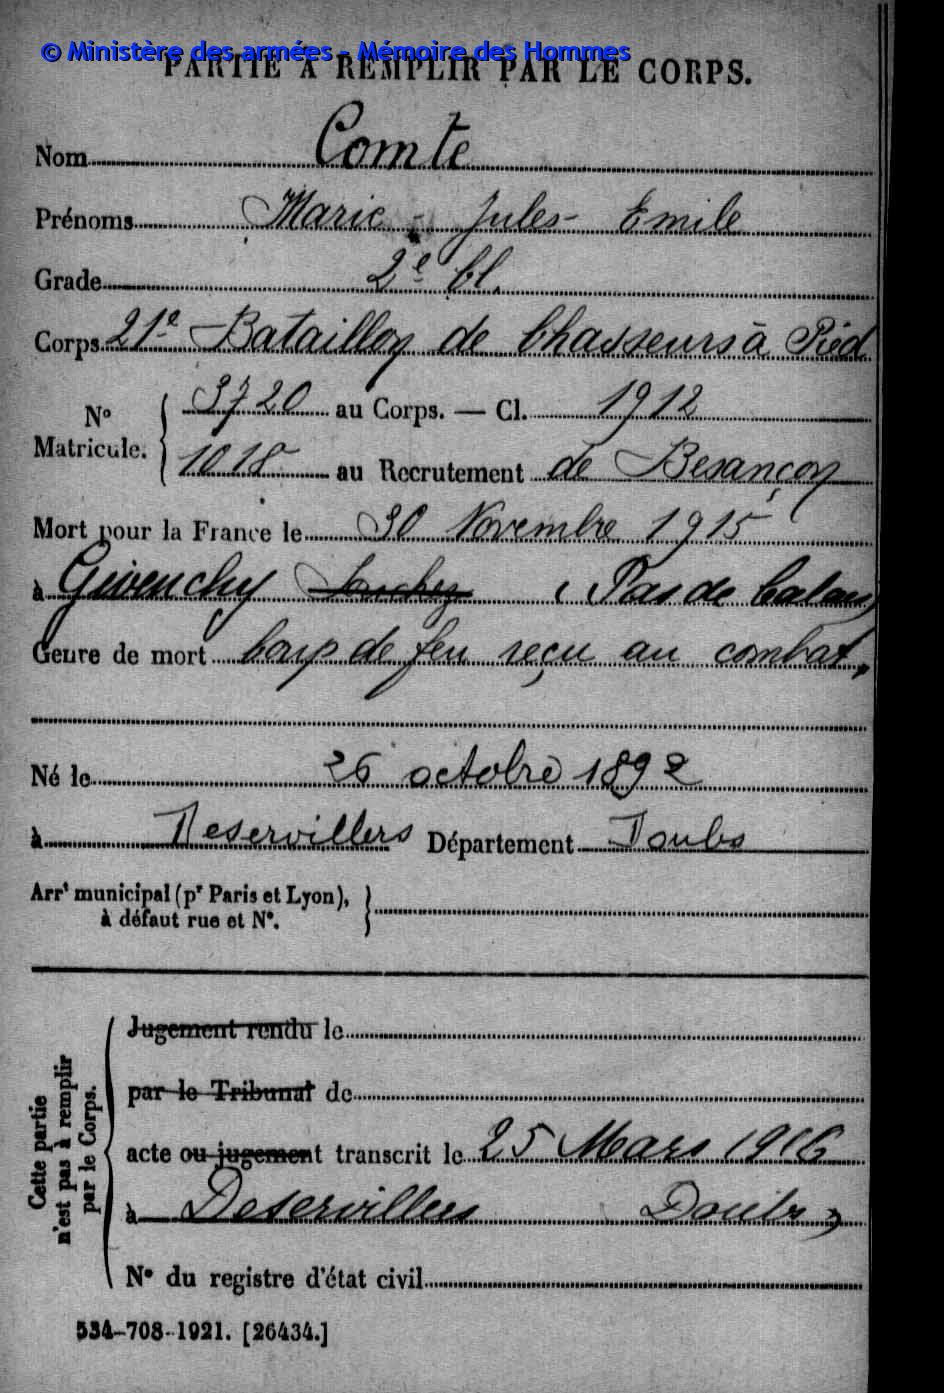 © Ministère des armées - Mémoire des Hommes
PARTIE À REMPLIR PAR LE CORPS.
Nom Comte
Prénoms Marie - Jules - Emile
Grade 2e Cl.
Corps 21e Bataillon de Chasseurs à Pied
No Matricule. { 3720 au Corps. — Cl. 1912
1018 au Recrutement de Besançon
Mort pour la France le 30 Novembre 1915
à Givenchy Souchez (Pas de Calais)
Genre de mort Coup de feu reçu au combat.
Né le 26 octobre 1892
à Deservillers Département Doubs
Arrt municipal (pr Paris et Lyon),
à défaut rue et No.
Cette partie n'est pas à remplir par le Corps.
Jugement rendu le
par le Tribunal de
acte ou jugement transcrit le 25 Mars 1916
à Deservillers Doubs
No du registre d'état civil
534-708-1921. [26434.]